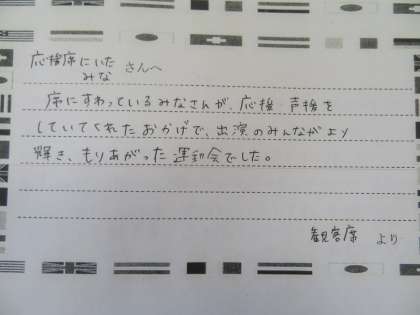 応援席にいた
みな さんへ
席にすわっているみなさんが、応援・声援を
していてくれたおかげで、出演のみんながより
輝き、もりあがった運動会でした。
観客席 より